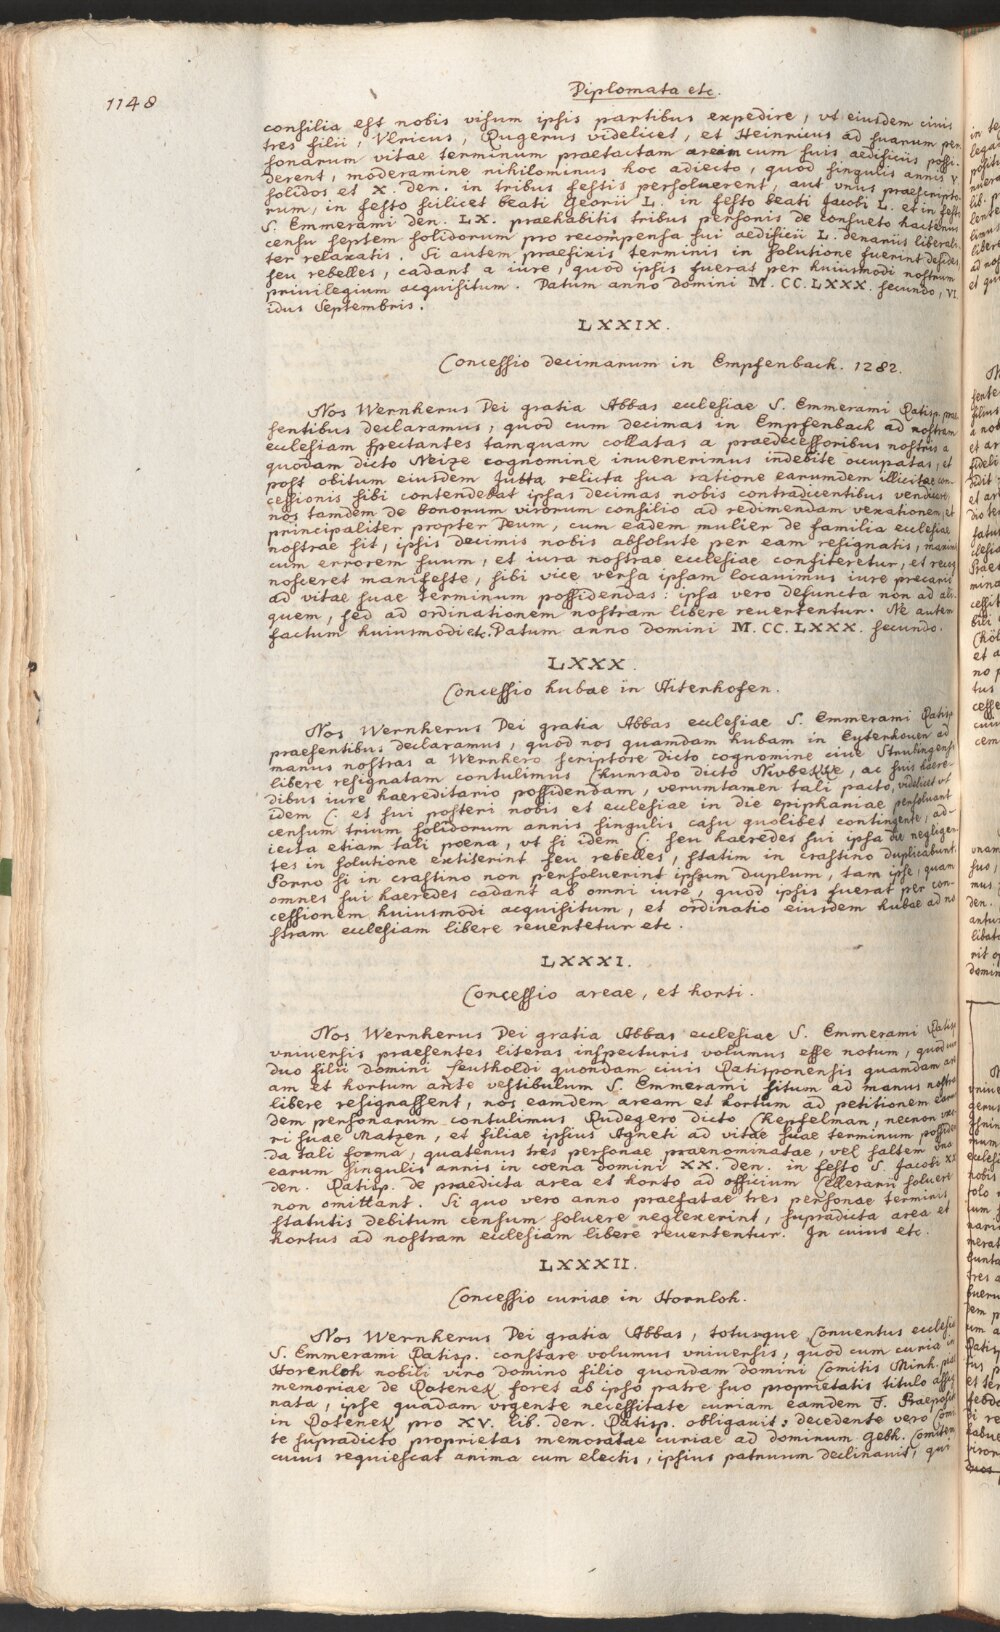 1148
Diplomata etc.
consilia est nobis visum ipsis partibus expedire, vt eiusdem ciuis
tres filii, Vlricus, Rugerus videlicet, et Heinricus ad suarum per-
sonarum vitae terminum praetactam aream cum suis aedificiis possi-
derent, moderamine nihilominus hoc adiecto, quod singulis annis V.
solidos et X. den. in tribus festis persoluerent, aut vnius praescripto-
rum, in festo scilicet beati Georii L. in festo beati Jacobi L. et in festo
S. Emmerami den. LX. praehabitis tribus personis de consueto hactenus
censu septem solidorum pro recompensa sui aedificii L. denariis liberali-
ter relaxatis. Si autem praefixis terminis in solutione fuerint desides
seu rebelles, cadant a iure, quod ipsis fuerat per huiusmodi nostrum
priuilegium acquisitum. Datum anno domini M. CC. LXXX. secundo, VI.
idus Septembris.
LXXIX.
Concessio decimarum in Empfenbach. 1282.
Nos Wernherus Dei gratia Abbas ecclesiae S. Emmerami Ratisp. prae-
sentibus declaramus, quod cum decimas in Empfenbach ad nostram
ecclesiam spectantes tamquam collatas a praedecessoribus nostris a
quodam dicto Neize cognomine inuenerimus indebite occupatas, et
post obitum eiusdem Jutta relicta sua ratione earumdem illicitae con-
cessionis sibi contendebat ipsas decimas nobis contradicentibus vendicare,
nos tamdem de bonorum virorum consilio ad redimendam vexationem, et
principaliter propter Deum, cum eadem mulier de familia ecclesiae
nostrae sit, ipsis decimis nobis absolute per eam resignatis, maxime
cum errorem suum, et iura nostrae ecclesiae confiteretur, et recog
nosceret manifeste, sibi vice versa ipsam locauimus iure precarii
ad vitae suae terminum possidendas: ipsa vero defuncta non ad ali-
quem, sed ad ordinationem nostram libere reuertentur. Ne autem
factum huiusmodi etc. Datum anno domini M. CC. LXXX. secundo.
LXXX.
Concessio hubae in Aitenhofen.
Nos Wernherus Dei gratia Abbas ecclesiae S. Emmerami Ratisp.
praesentibus declaramus, quod nos quamdam hubam in Eytenhouen ad
manus nostras a Wernhero scriptore dicto cognomine ciue Strubingensi
libere resignatam contulimus Chunrado dicto, ac suis haere-
dibus iure haereditario possidendam, verumtamen tali pacto, videlicet vt
idem C. et sui posteri nobis et ecclesiae in die epiphaniae persoluant
censum trium solidorum annis singulis casu quolibet contingente, ad-
iecta etiam tali poena, vt si idem C. seu haeredes sui ipsa die negligen-
tes in solutione extiterint seu rebelles, statim in crastino duplicabunt.
Porro si in crastino non persoluerint ipsum duplum, tam ipse, quam
omnes sui haeredes cadant ab omni iure, quod ipsis fuerat per con-
cessionem huiusmodi acquisitum, et ordinatio eiusdem hubae ad no-
stram ecclesiam libere reuertetur etc.
LXXXI.
Concessio areae, et horti.
Nos Wernherus Dei gratia Abbas ecclesiae S. Emmerami Ratisp.
vniuersis praesentes literas inspecturis volumus esse notum, quod cum
duo filii domini Leutholdi quondam ciuis Ratisponensis quamdam are-
am et hortum ante vestibulum S. Emmerami situm ad manus nostras
libere resignassent, nos eamdem aream et hortum ad petitionem earum-
dem personarum contulimus Rudegero dicto Chepfelman, necnon vxo-
ri suae Matzen, et filiae ipsius Agneti ad vitae suae terminum possiden-
da tali forma, quatenus tres personae praenominatae, vel saltem vna
earum singulis annis in coena domini XX. den. in festo S. Jacobi XX.
den. Ratisp. de praedicta area et horto ad officium Cellerarii soluere
non omittant. Si quo vero anno praefatae tres personae terminis
statutis debitum censum soluere neglexerint, supradicta area et
hortus ad nostram ecclesiam libere reuertentur. In cuius etc.
LXXXII.
Concessio curiae in Hornloh.
Nos Wernherus Dei gratia Abbas, totusque Conuentus ecclesiae
S. Emmerami Ratisp. constare volumus vniuersis, quod cum curia in
Horenloh nobili viro domino filio quondam domini Comitis Minh. piae
memoriae de Rotenek fores ab ipso patre suo proprietatis titulo assig-
nata, ipse quadam vrgente necessitate curiam eamdem J. Praeposito
in Rotenek pro XV. lib. den. Ratisp. obligauit; decedente vero Comi-
te supradicto proprietas memoratae curiae ad dominum Gebh. Comitem
cuius requiescat anima cum electis, ipsius patruum declinauit, qui